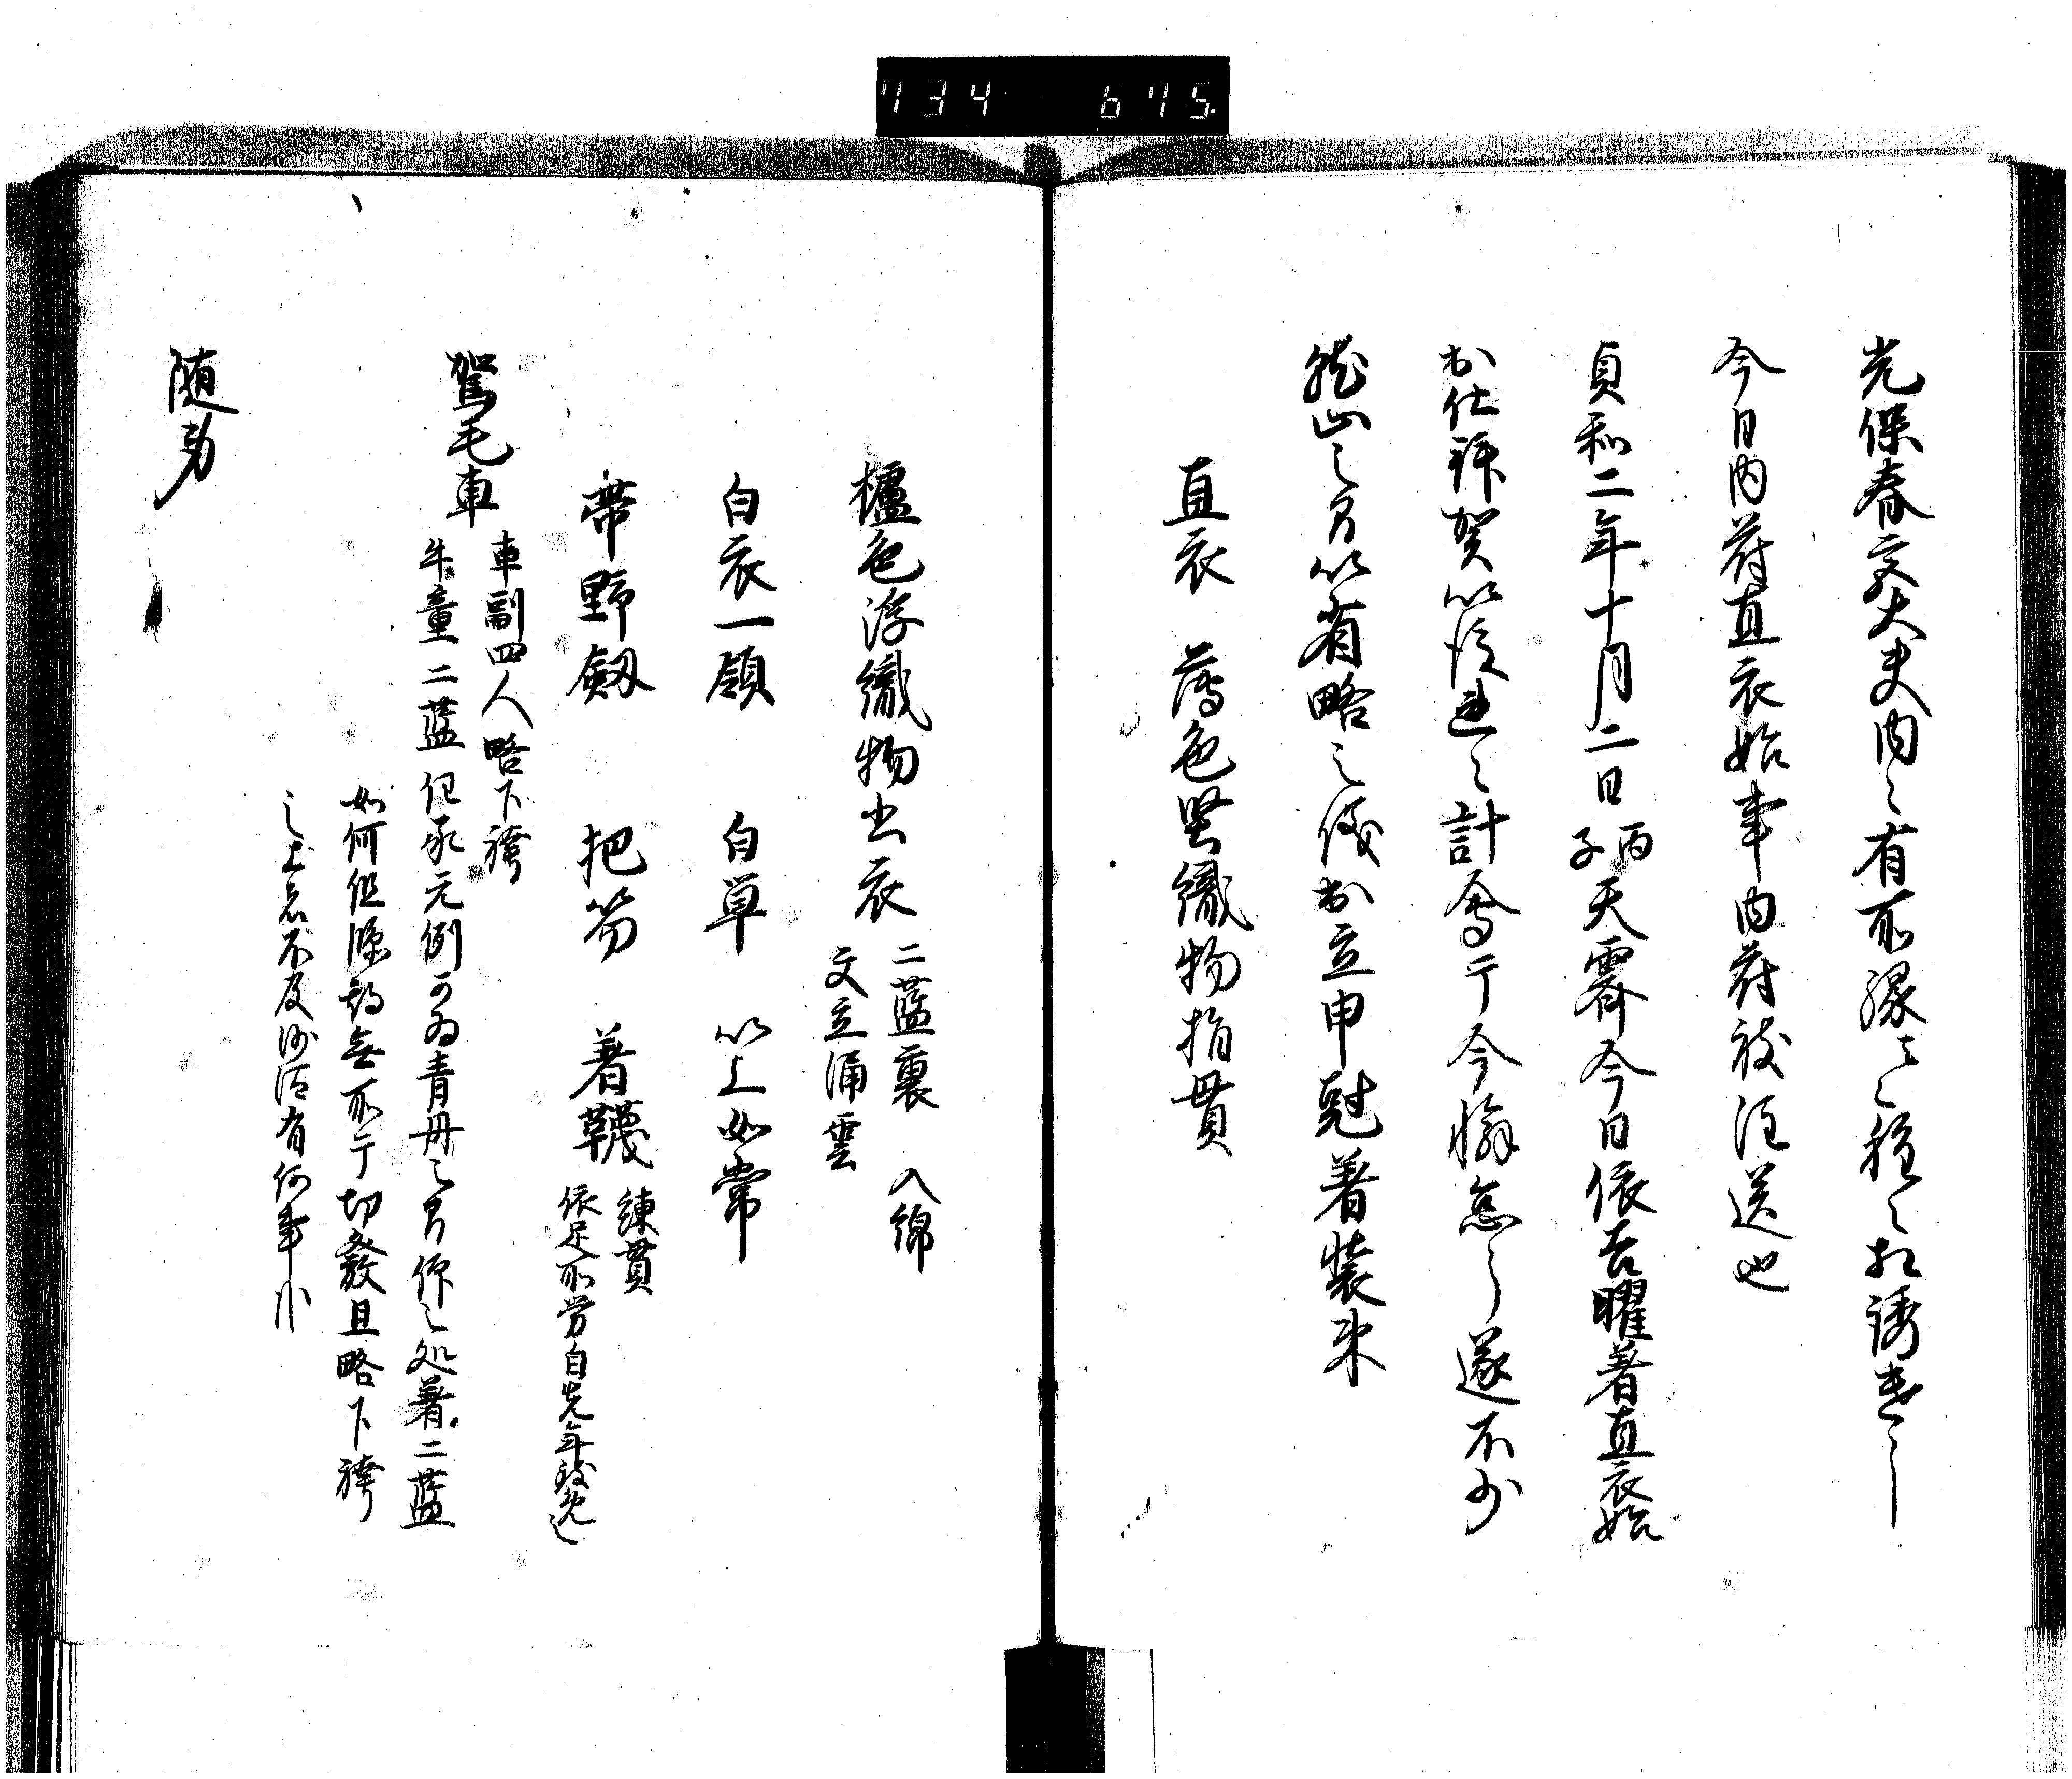 734 675
光保春宮大夫内々有所縁之種々相誘云々
今日内府直衣始事内府被注送也
貞和二年十月二日丙子天霽今日依吉曜着直衣始
出仕拝賀以後連々計会于今懈怠々遂不少
然而之間以省略之儀出立申剋着装束
直衣 薄色堅織物指貫
櫨色浮織物出衣 二藍裏 入綿
文立涌雲
白衣一領 白単 以上如常
帯野剱 把笏 着韈 練貫
依足所労自先年被免之
駕毛車 車副四人略下袴
牛童二藍 但承元例可為青丹之間仰之処着二藍
如何但源 無所于切發且略下袴
之上者不及沙汰有何事哉
随身